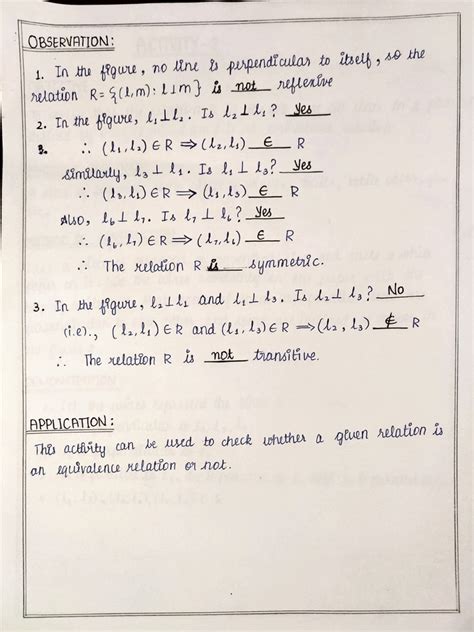 OBSERVATION:
1. In the figure, no line is perpendicular to itself, so the
relation R = {(l,m): l⊥m} is not reflexive
2. In the figure, l₁⊥l₂. Is l₂⊥l₁? Yes
3. ∴ (l₁,l₂) ∈ R ⇒ (l₂,l₁) ∈ R
Similarly, l₃ ⊥ l₁. Is l₁ ⊥ l₃? Yes
∴ (l₃,l₁) ∈ R ⇒ (l₁,l₃) ∈ R
Also, l₆ ⊥ l₇. Is l₇ ⊥ l₆? Yes
∴ (l₆,l₇) ∈ R ⇒ (l₇,l₆) ∈ R
∴ The relation R is symmetric.
3. In the figure, l₂⊥l₁ and l₁⊥l₃. Is l₂⊥l₃? No
(i.e)., (l₂,l₁) ∈ R and (l₁,l₃) ∈ R ⇒ (l₂,l₃) ∉ R
∴ The relation R is not transitive.
APPLICATION:
This activity can be used to check whether a given relation is
an equivalence relation or not.